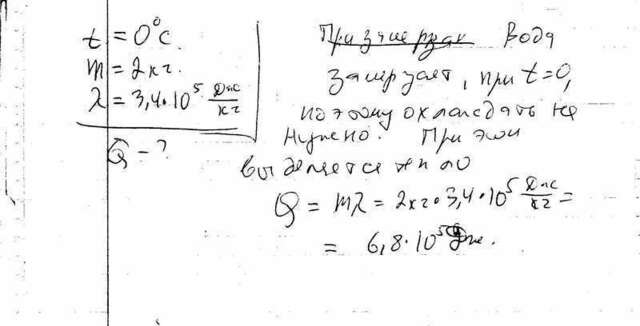 t = 0°C.
m = 2кг.
λ = 3,4·10⁵ Дж/кг
Q - ?
При замерзан Вода
замерзает, при t=0,
поэтому охлаждать не
нужно. При этом
выделяется тепло
Q = mλ = 2кг·3,4·10⁵ Дж/кг =
= 6,8·10⁵ Дж.